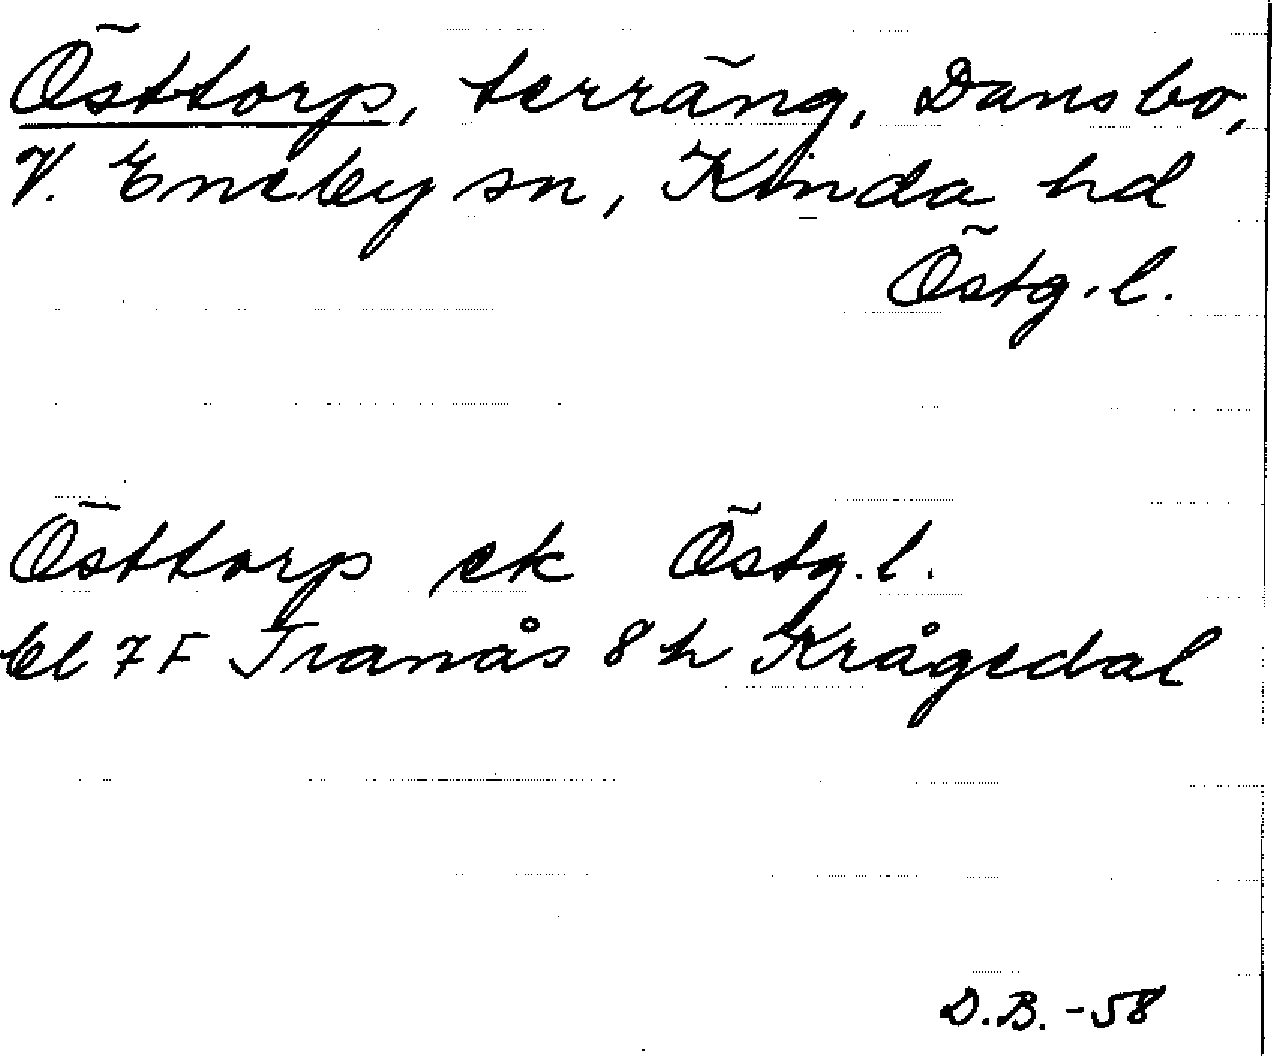 Östtorp, terräng, Dansbo,
V. Eneby sn, Kinda hd
Östg.l.
Östtorp ek Östg.l.
bl 7 F Tranås 8 h Krågedal
D.B. -58